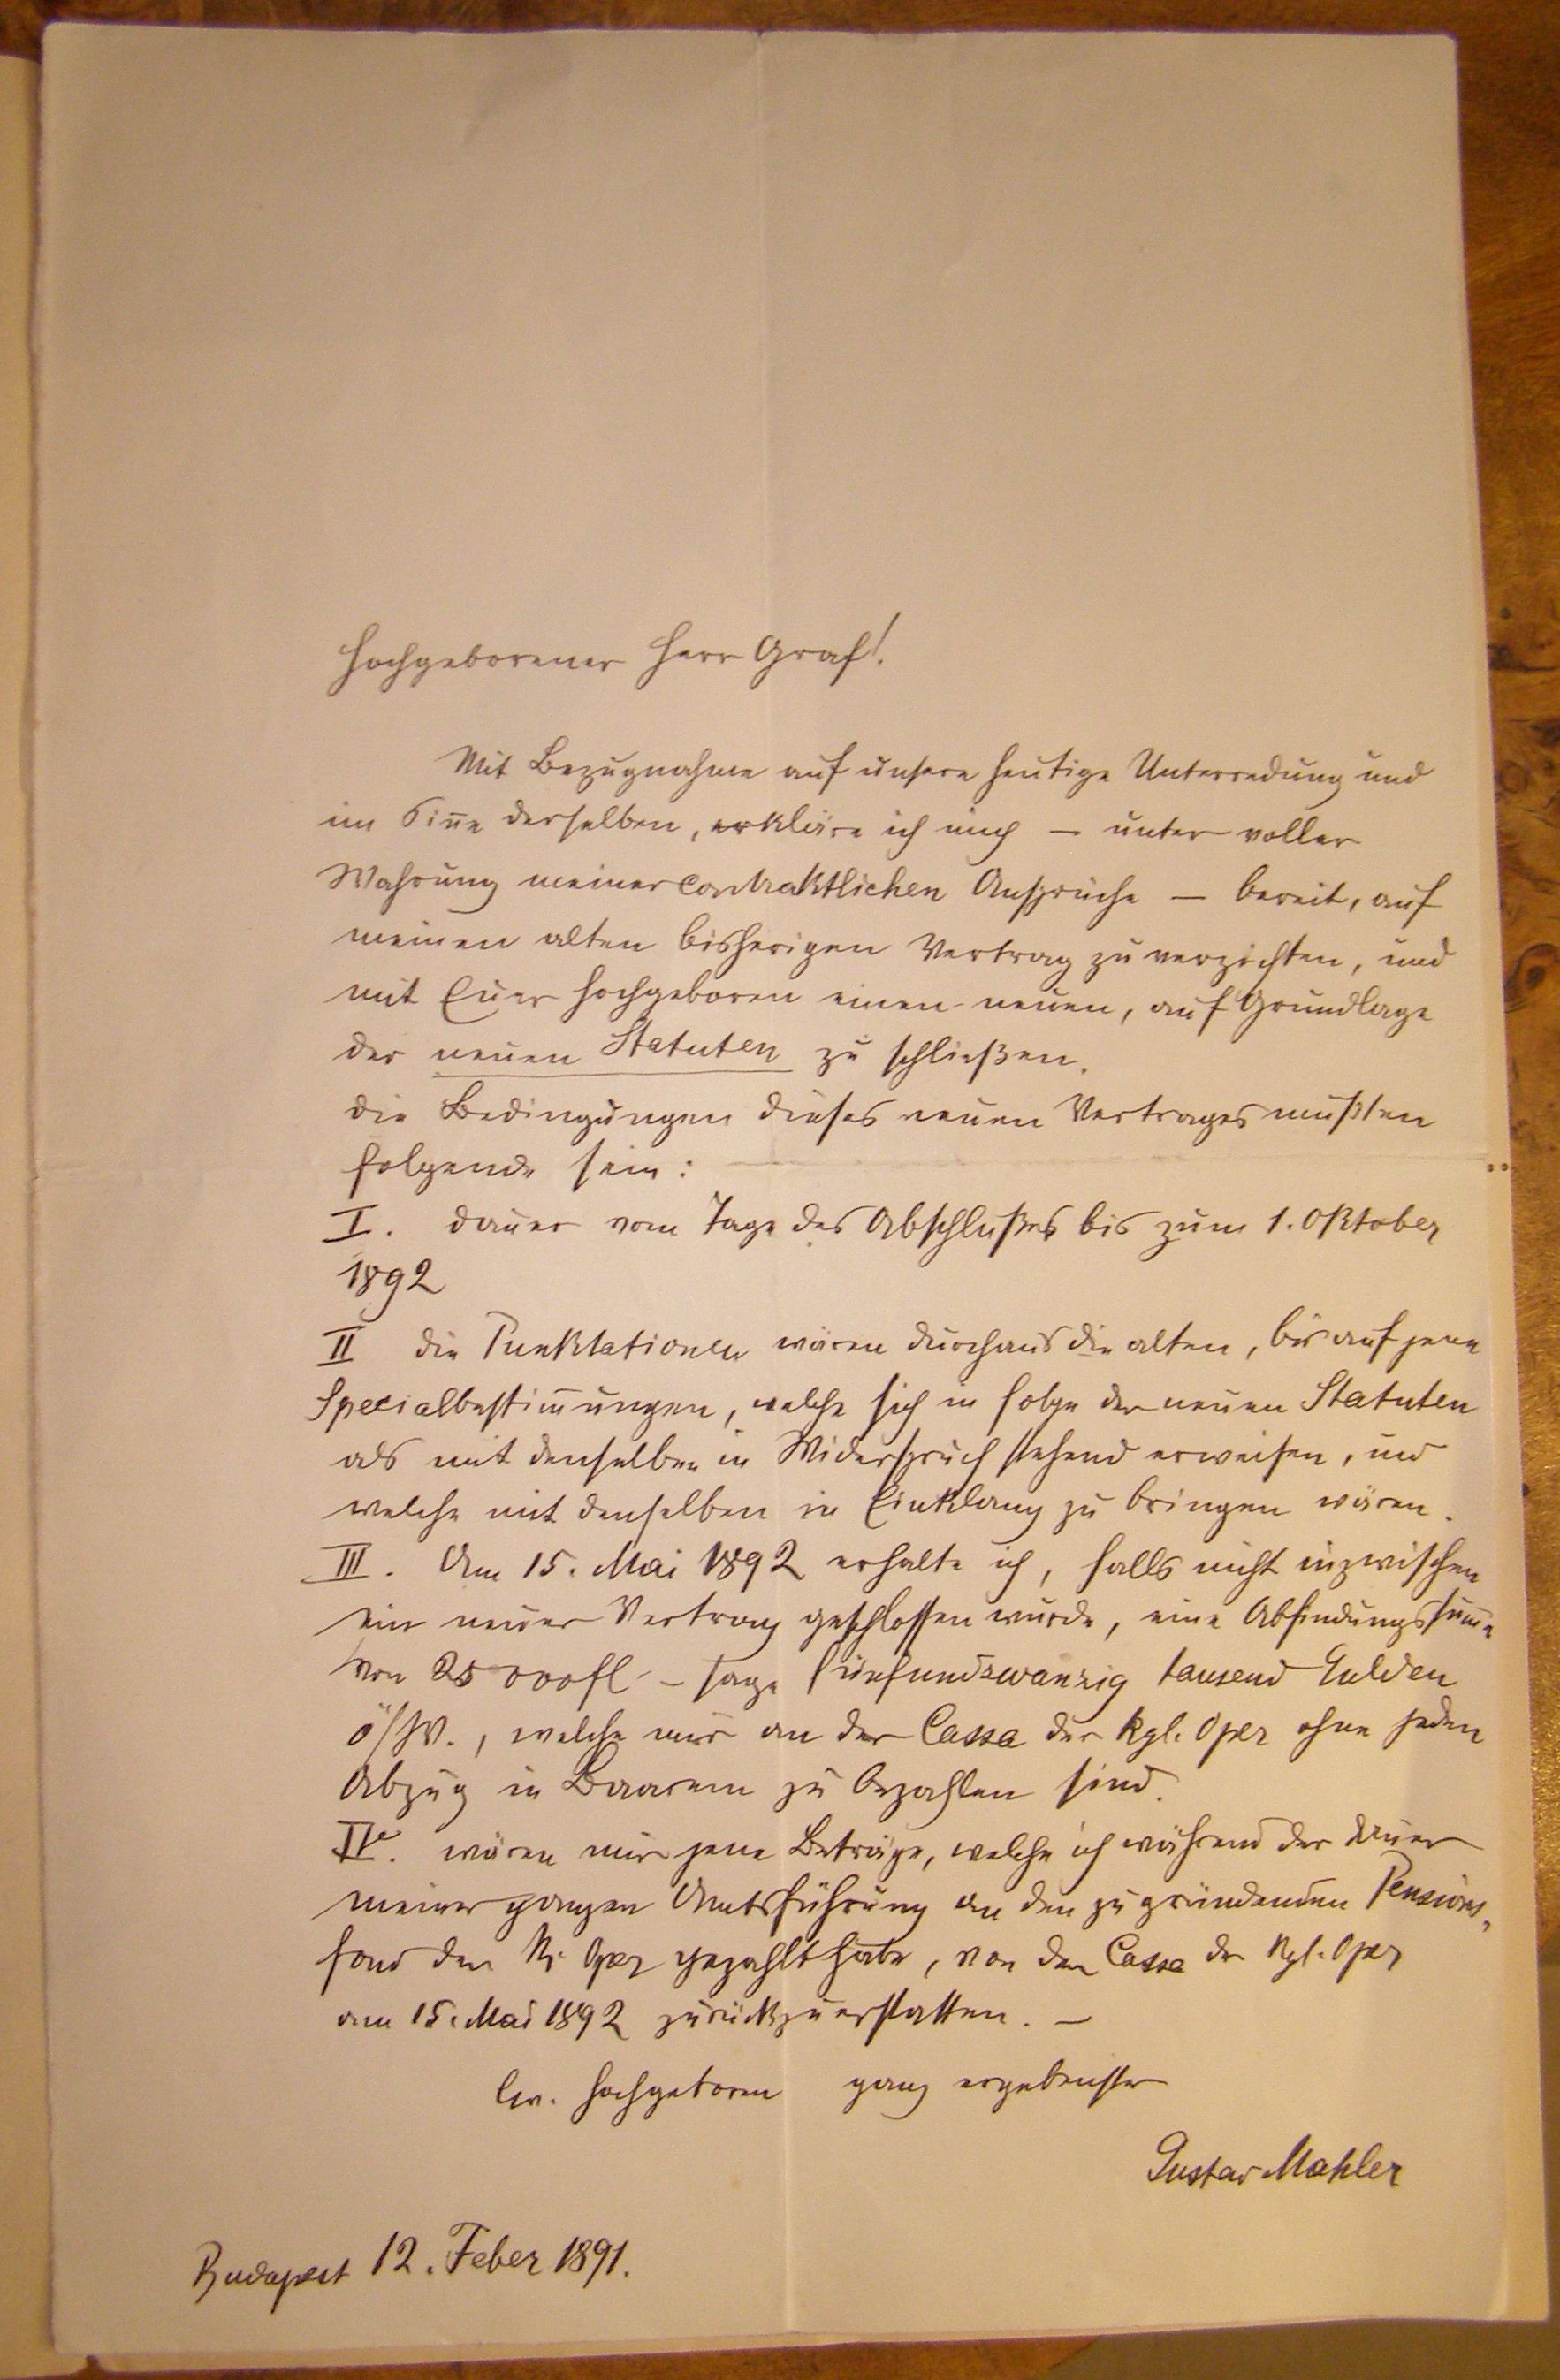 Hochgeborener Herr Graf!
Mit Bezugnahme auf unsere heutige Unterredung und
im Sin̄e derselben, erkläre ich mich – unter voller
Wahrung meiner contraktlichen Ansprüche – bereit, auf
meinen alten bisherigen Vertrag zu verzichten, und
mit Euer Hochgeboren einen neuen, auf Grundlage
der neuen Statuten zu schließen.
Die Bedingungen dieses neuen Vertrages müßten
folgende sein:
I. Dauer vom Tage des Abschlußes bis zum 1. Oktober
1892
II Die Punktationen wären durchaus die alten, bis auf jene
Specialbestim̄ungen, welche sich in Folge der neuen Statuten
als mit denselben in Widerspruch stehend erweisen, und
welche mit denselben in Einklang zu bringen wären.
III. Am 15. Mai 1892 erhalte ich, falls nicht inzwischen
ein neuer Vertrag geschlossen wurde, eine Abfindungssum̄e
von 25000 fl – sage fünfundzwanzig tausend Gulden
ö/W., welche mir an der Cassa der kgl. Oper ohne jeden
Abzug in Baarem zu bezahlen sind.
IV. wären mir jene Beträge, welche ich während der Dauer
meiner ganzen Amtsführung an den zu gründenden Pensions-
fond der k. Oper gezahlt habe, von der Cassa der kgl. Oper
am 15. Mai 1892 zurückzuerstatten. –
Ew. Hochgeboren ganz ergebenster
Gustav Mahler
Budapest 12. Feber 1891.